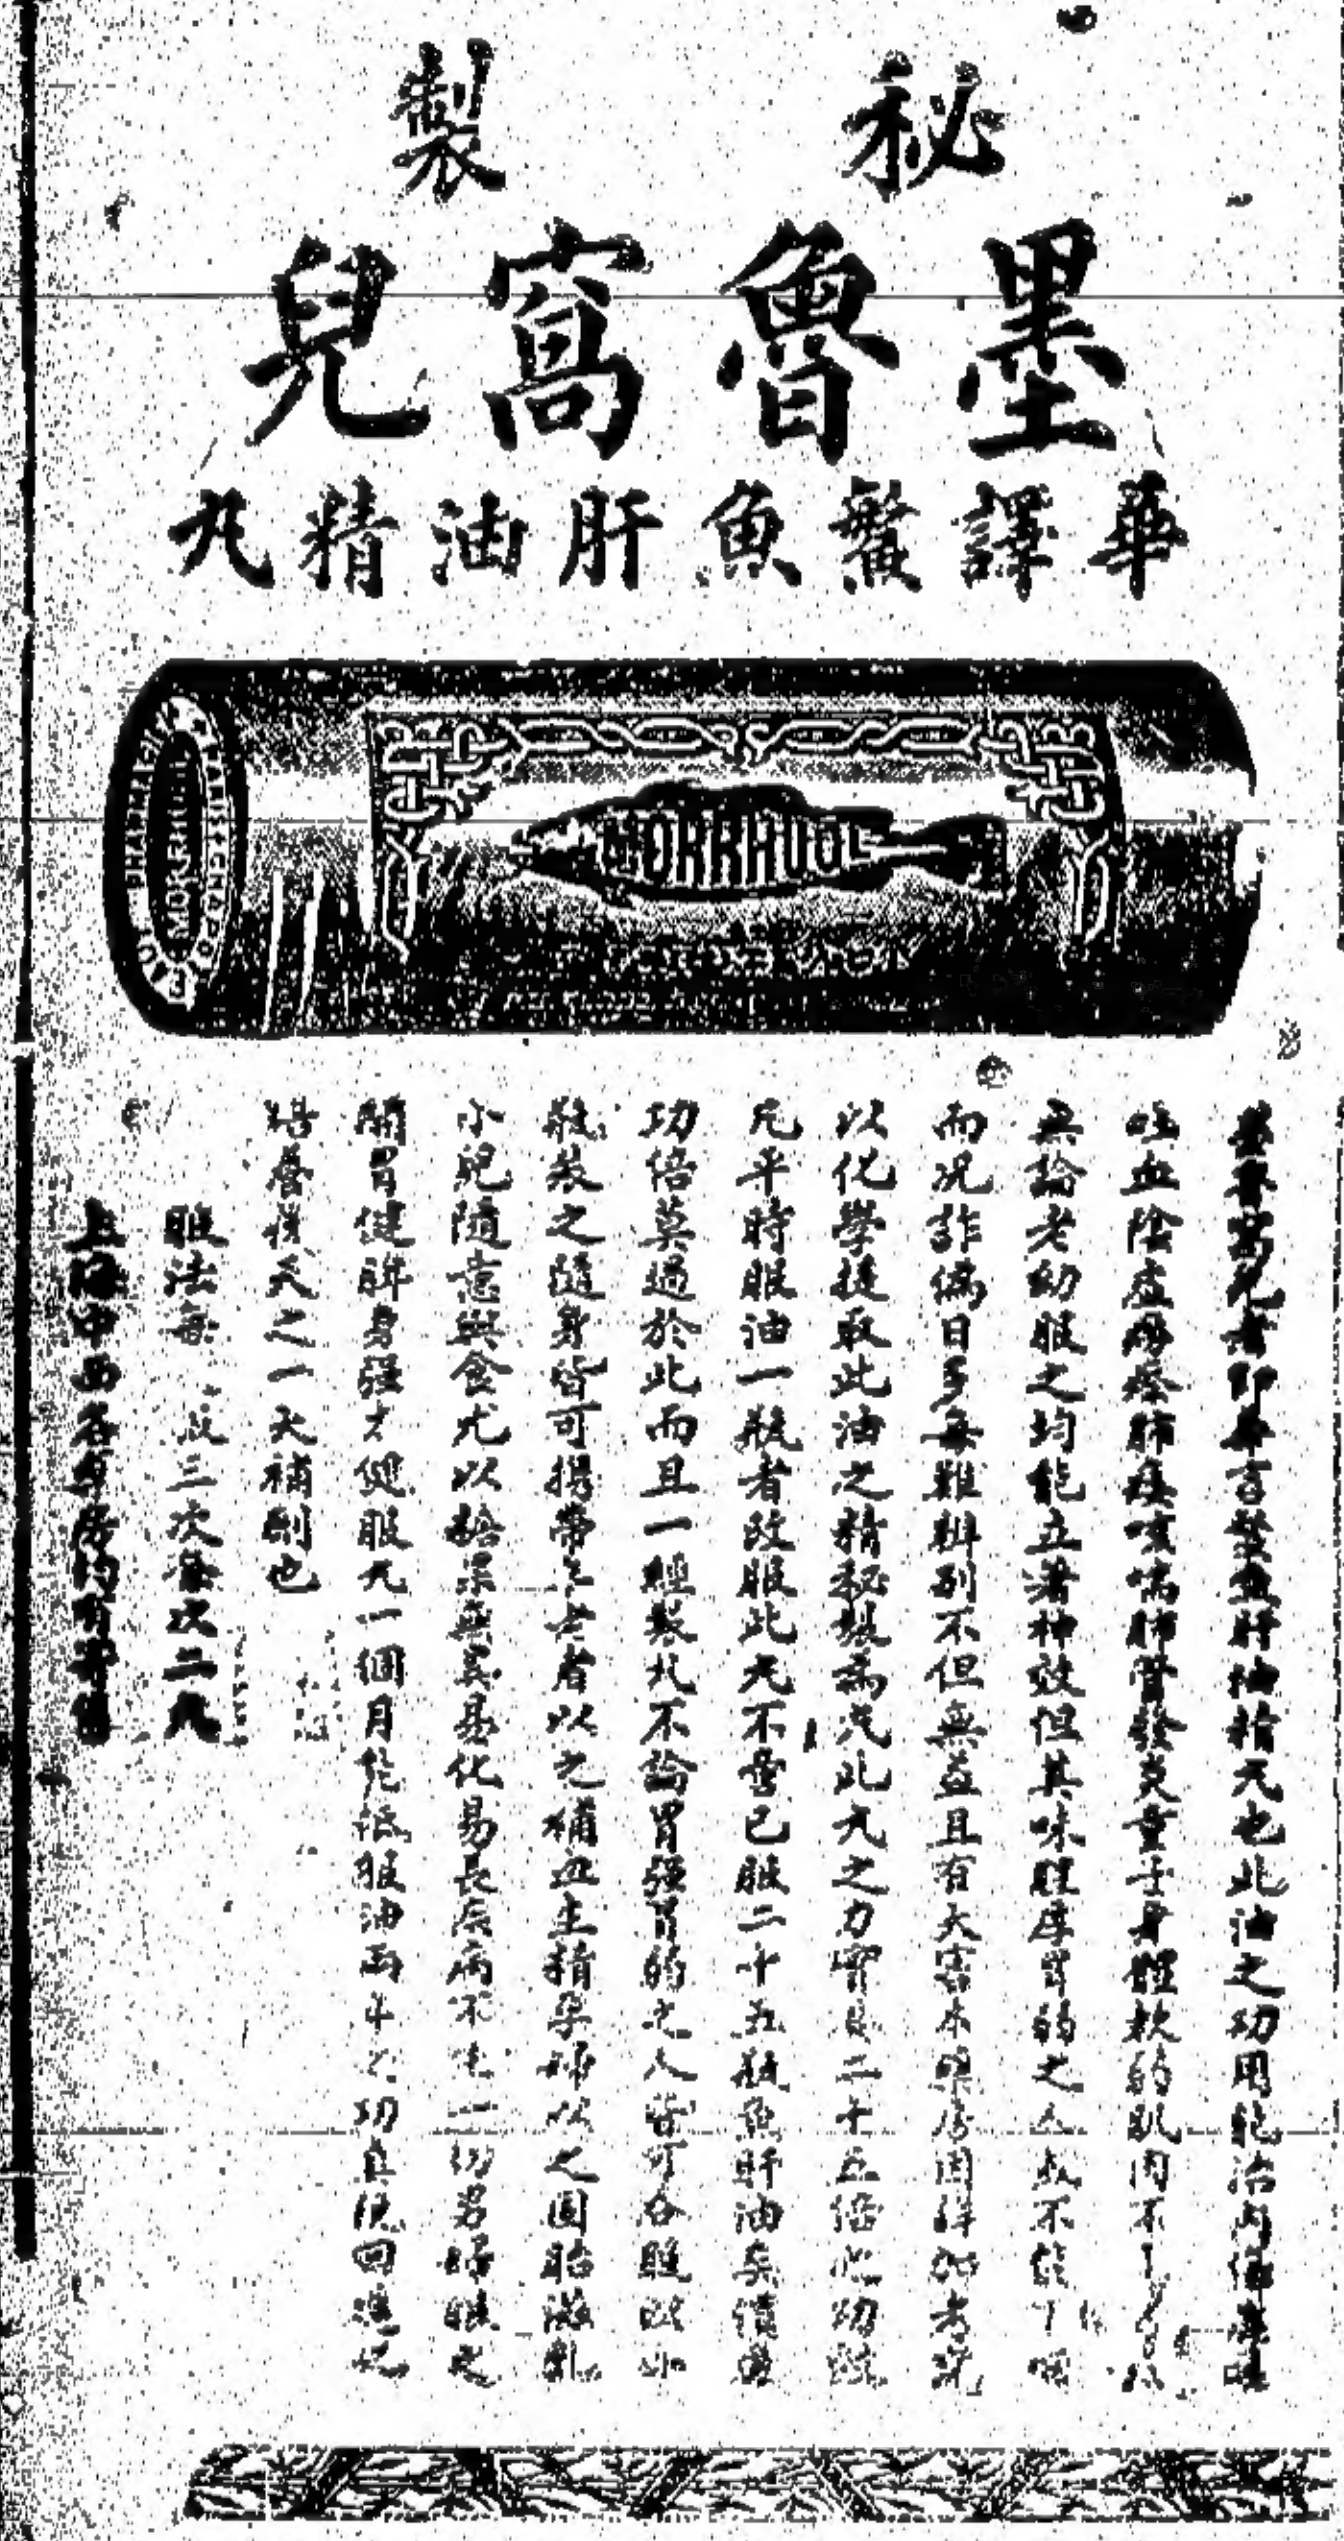 秘製
墨魯窩兒
華譯鱉魚肝油精丸
MORRHUOL
PARIS CHAPO
MORRHUOL
墨魯窩兒者即華言鱉魚肝油精丸也此油之功用能治內傷
吐血陰虛癆瘵肺痿咳嗽肺管發炎童子身體軟弱肌肉不
無論老幼服之均能立著神效但其味腥厚胃弱之人或不能下咽
而況詐偽日多每難辨別不但無益且有大害本藥房因詳加考究
以化學提取此油之精秘製為丸此丸之力實足二十五倍
凡平時服油一瓶者改服此丸不啻已服二十五瓶魚肝油矣
功倍莫過於此而且一經製丸不論胃強胃弱之人皆可合服以小
瓶裝之隨身皆可攜帶老者以之補血生精孕婦以之固胎滋乳
小兒隨意與食尤以糖菓無異易化易長辰病不生一切男婦服之
開胃健脾身強力健服丸一個月能抵服油兩年之功真
培養後天之一大補劑也
服法每 三次每次二丸
上海中西各藥房均有寄售